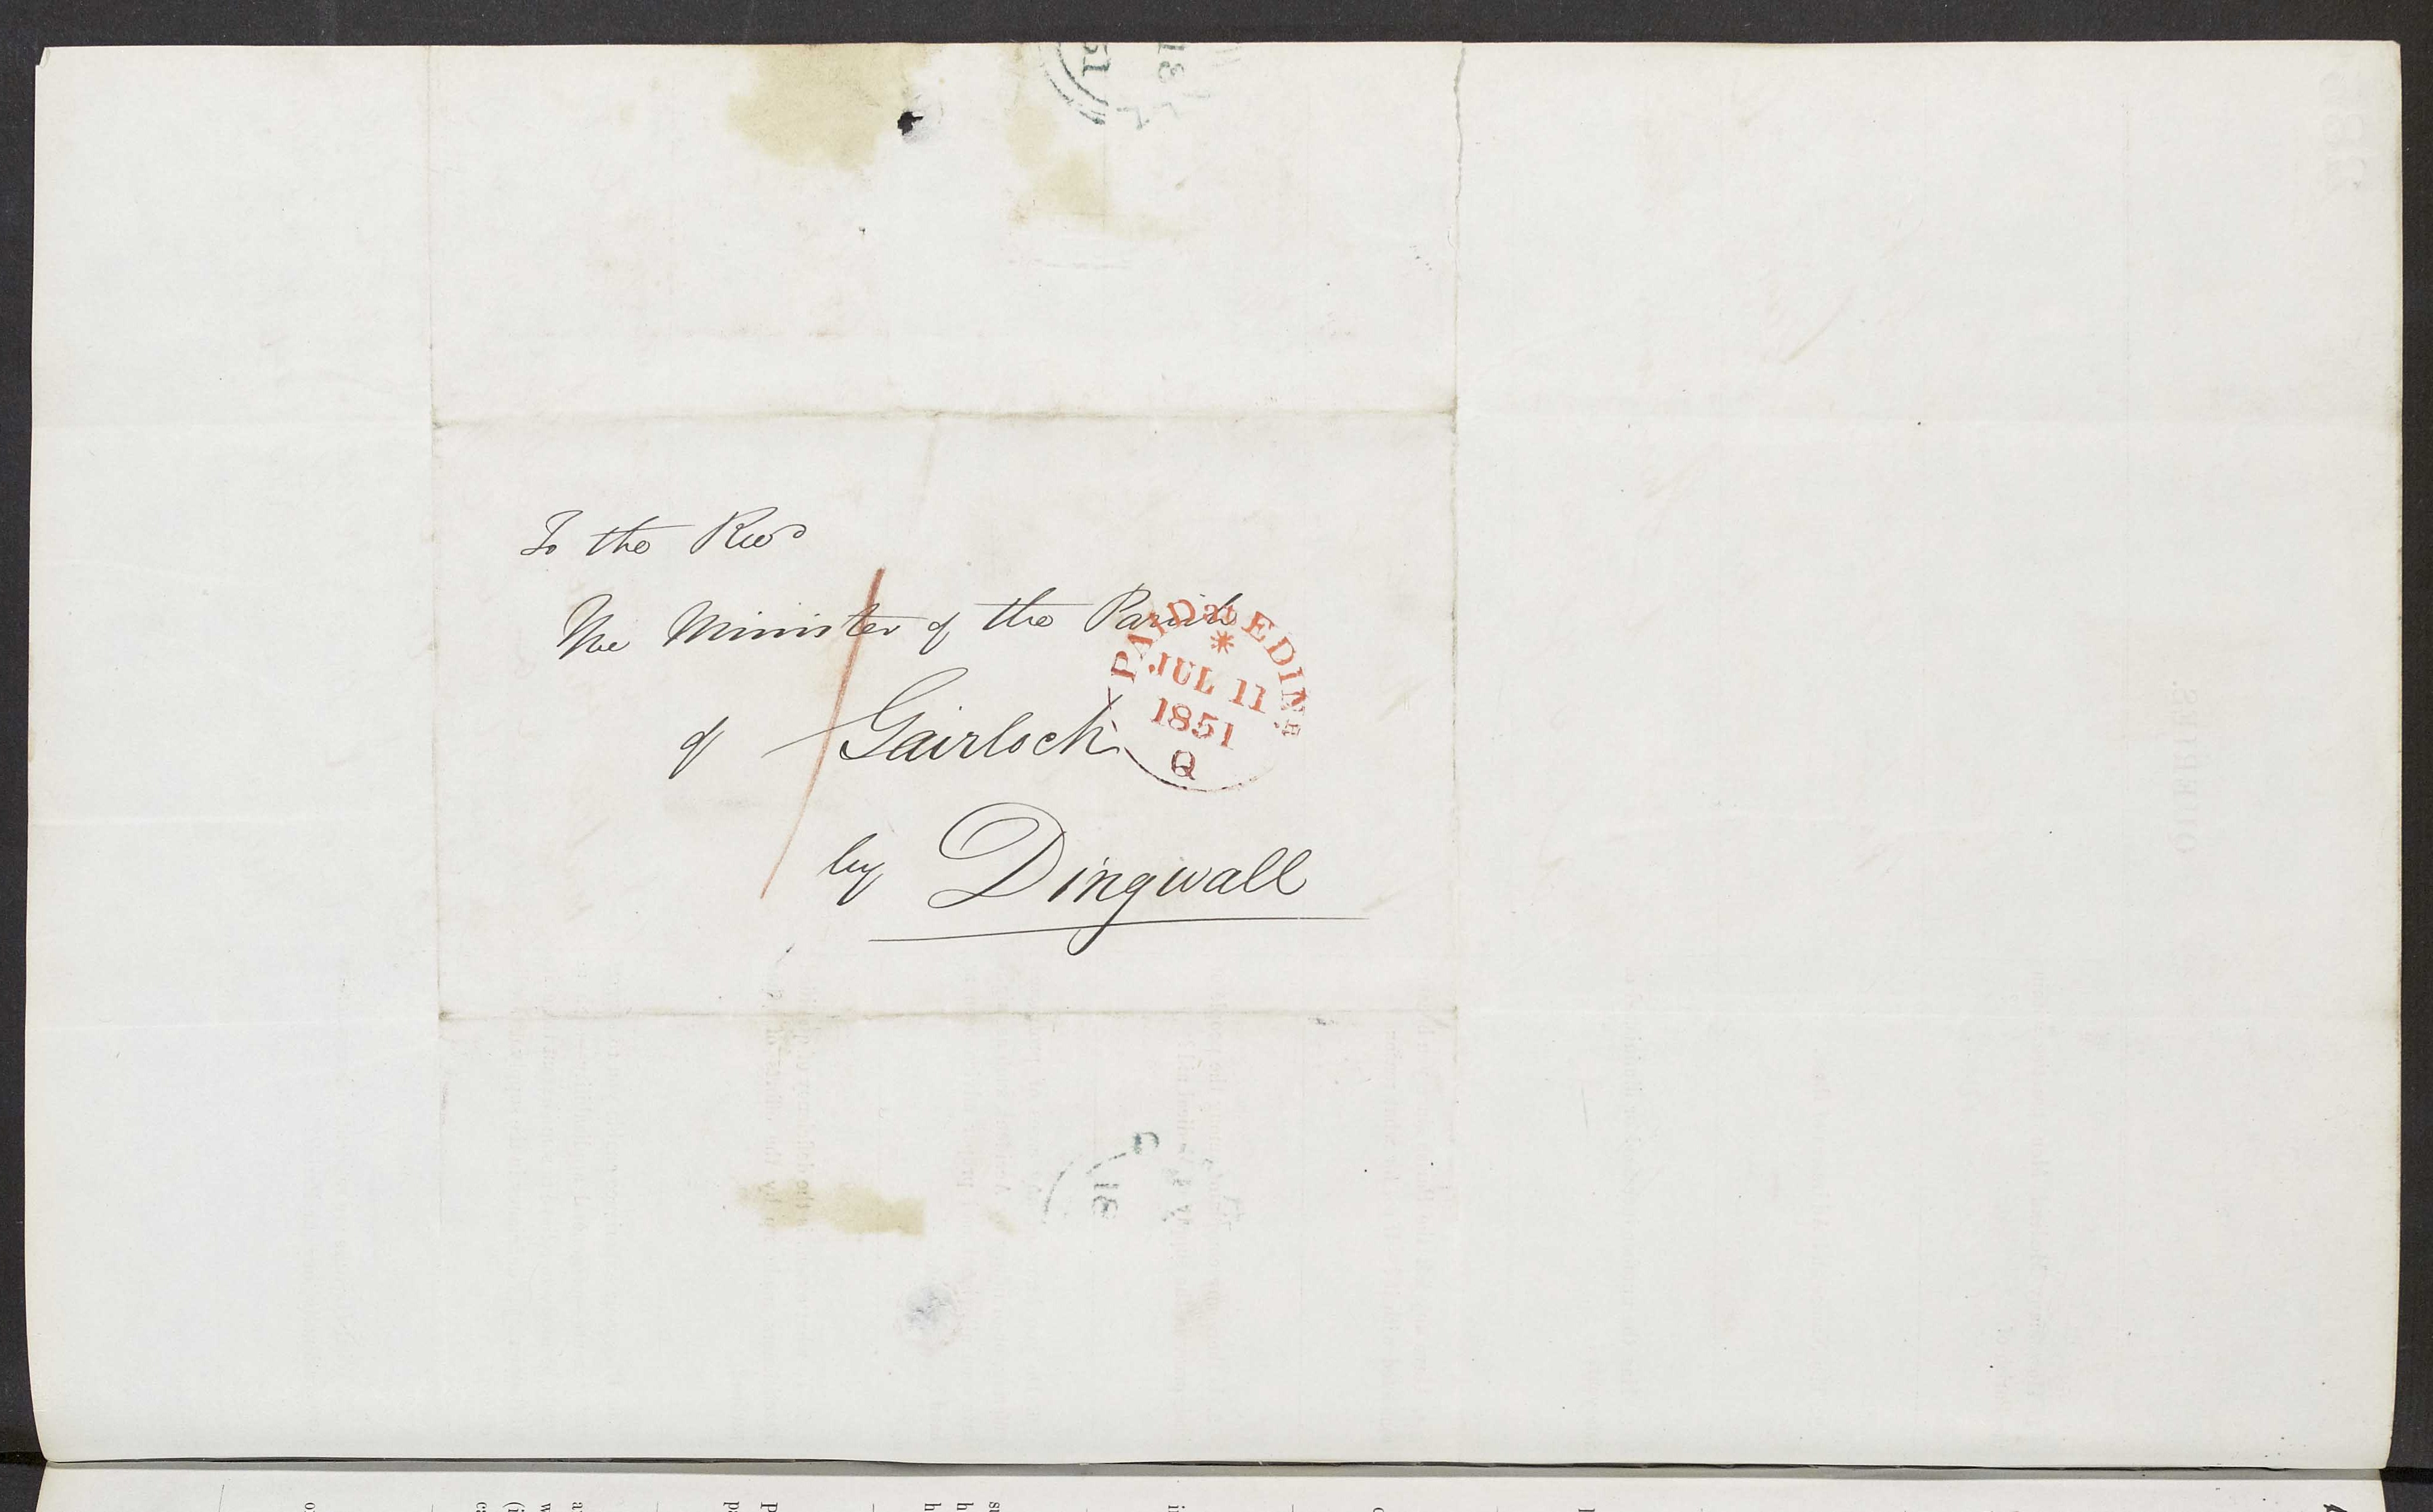 To the Revd
The Minister of the Parish
of Gairloch
by Dingwall
PAID at EDINR
JUL 11
1851
Q